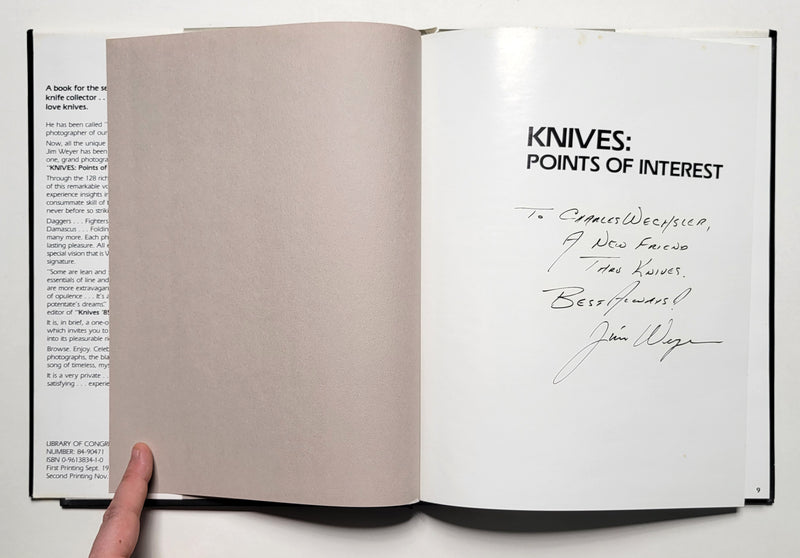 A book for the se
knife collector . .
love knives.
He has been called "
photographer of our
Now, all the unique
Jim Weyer has been
one, grand photogra
"KNIVES: Points of
Through the 128 rich
of this remarkable vo
experience insights in
consummate skill of t
never before so strik
Daggers . . . Fighters
Damascus . . . Foldin
many more. Each ph
lasting pleasure. All e
special vision that is W
signature.
"Some are lean and s
essentials of line and
are more extravagan
of opulence . . . It's a
potentate's dreams."
editor of "Knives '85
It is, in brief, a one-o
which invites you to
into its pleasurable ri
Browse. Enjoy. Celeb
photographs, the bla
song of timeless, mys
It is a very private . .
satisfying . . . experie
LIBRARY OF CONGRE
NUMBER: 84-90471
ISBN 0-9613834-1-0
First Printing Sept. 19
Second Printing Nov.
KNIVES:
POINTS OF INTEREST
To Charles Wechsler,
A New Friend
Thru Knives.
Best Always!
Jim Weyer
9